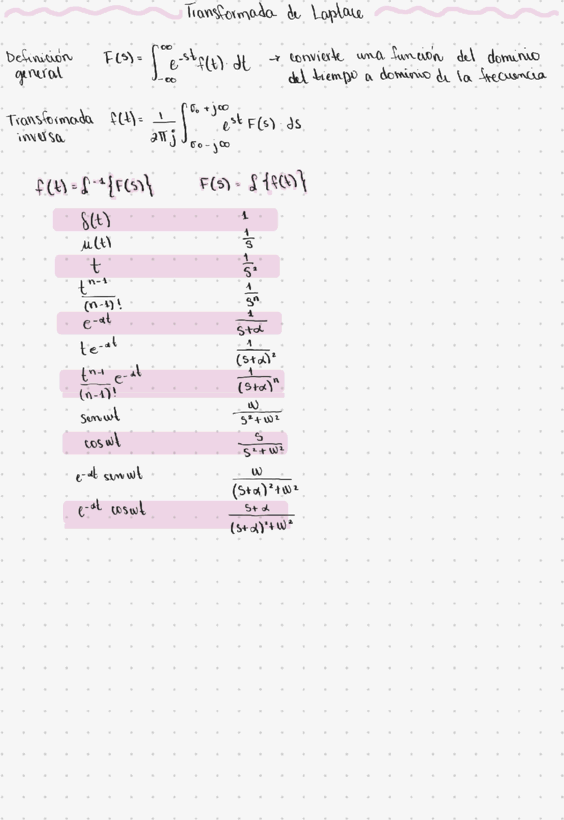 Transformada de Laplace
Definición general F(s) = ∫_{-∞}^{∞} e^{-st} f(t) · dt → convierte una función del dominio del tiempo a dominio de la frecuencia
Transformada inversa f(t) = 1/(2πj) ∫_{σ₀-j∞}^{σ₀+j∞} e^{st} F(s) ds
f(t) = ℒ^{-1}{F(s)} F(s) = ℒ{f(t)}
δ(t) 1
μ(t) 1/s
t 1/s²
t^{n-1}/(n-1)! 1/sⁿ
e^{-αt} 1/(s+α)
te^{-αt} 1/(s+α)²
t^{n-1}/(n-1)! e^{-αt} 1/(s+α)ⁿ
sen wt w/(s²+w²)
cos wt s/(s²+w²)
e^{-αt} sen wt w/((s+α)²+w²)
e^{-αt} cos wt (s+α)/((s+α)²+w²)